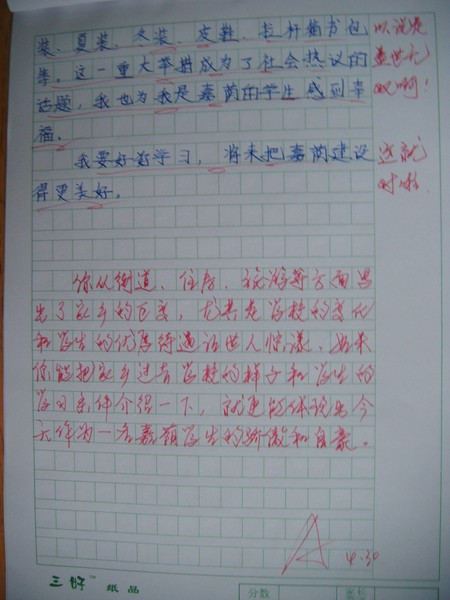 装、夏装、冬装、皮鞋、拉杆箱书包
等。这一重大举措成为了社会热议的
话题，我也为我是嘉荫的学生感到幸
福。
我要好好学习，将来把嘉荫建设
得更美好。
以说是
盖世无
双啊！
这就
对啦
你从街道、住房、旅游等方面写
出了家乡的巨变，尤其是学校的变化
和学生的优厚待遇让世人惊叹。如果
你能把家乡过去学校的样子和学生的
学习条件介绍一下，就更能体现出今
天作为一名嘉荫学生的骄傲和自豪。
A 4.30
三好 纸品
分数